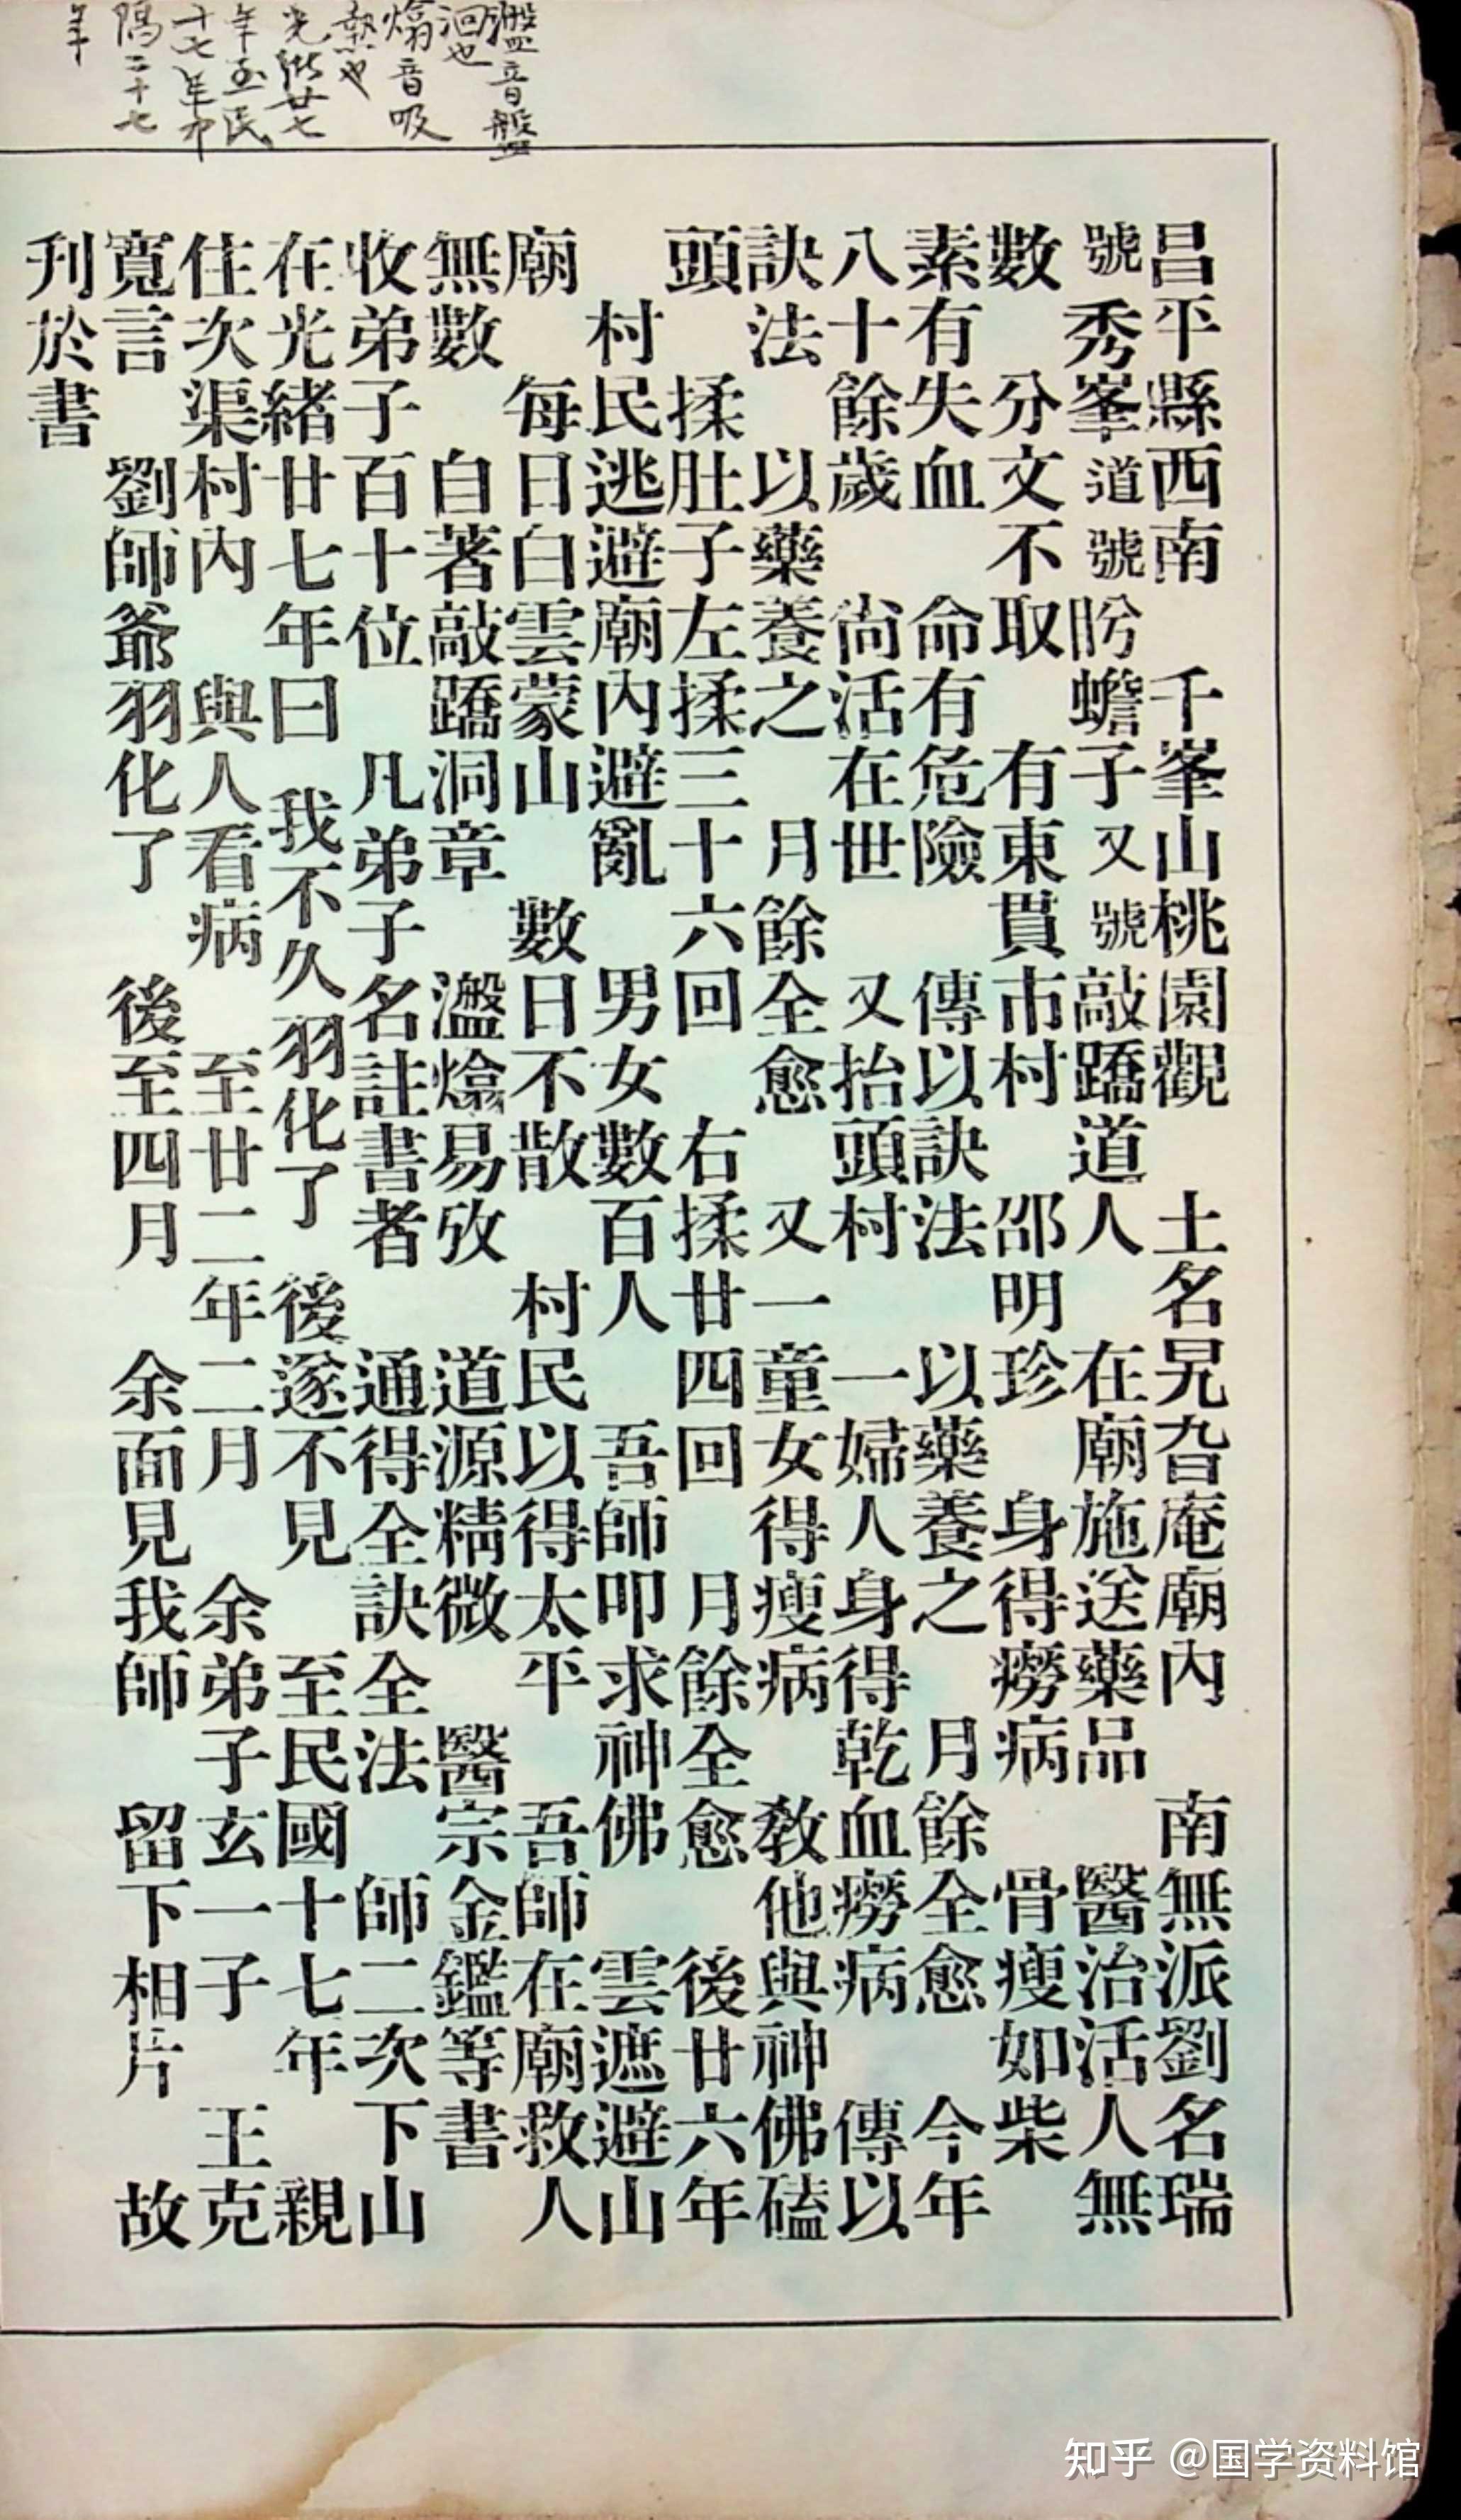 瀊音盤
洄也
熻音吸
熱也
光緒廿七
年至民
十七年中
隔二十七
年
昌平縣西南 千峯山桃園觀 土名旯旮庵廟內 南無派劉名瑞
號秀峯道號盼蟾子又號敲蹻道人在廟施送藥品 醫治活人無
數 分文不取 有東貫市村邵明珍 身得癆病 骨瘦如柴
素有失血 命有危險 傳以訣法 以藥養之 月餘全愈 今年
八十餘歲 尙活在世 又抬頭村 一婦人身得乾血癆病 傳以
訣法 以藥養之 月餘全愈 又一童女得瘦病 教他與神佛磕
頭 揉肚子左揉三十六回 右揉廿四回 月餘全愈 後廿六年
村民逃避廟內避亂 男女數百人 吾師叩求神佛 雲遮避山
廟 每日白雲蒙山 數日不散 村民以得太平 吾師在廟救人
無數 自著敲蹻洞章 瀊熻易攷 道源精微 醫宗金鑑等書
收弟子百十位 凡弟子名註書者 通得全訣全法 師二次下山
在光緒廿七年曰 我不久羽化了 後遂不見 至民國十七年 親
住次渠村內 與人看病 至廿二年二月 余弟子玄一子 王克
寬言 劉師爺羽化了 後至四月 余面見我師 留下相片 故
刋於書
知乎 @国学资料馆